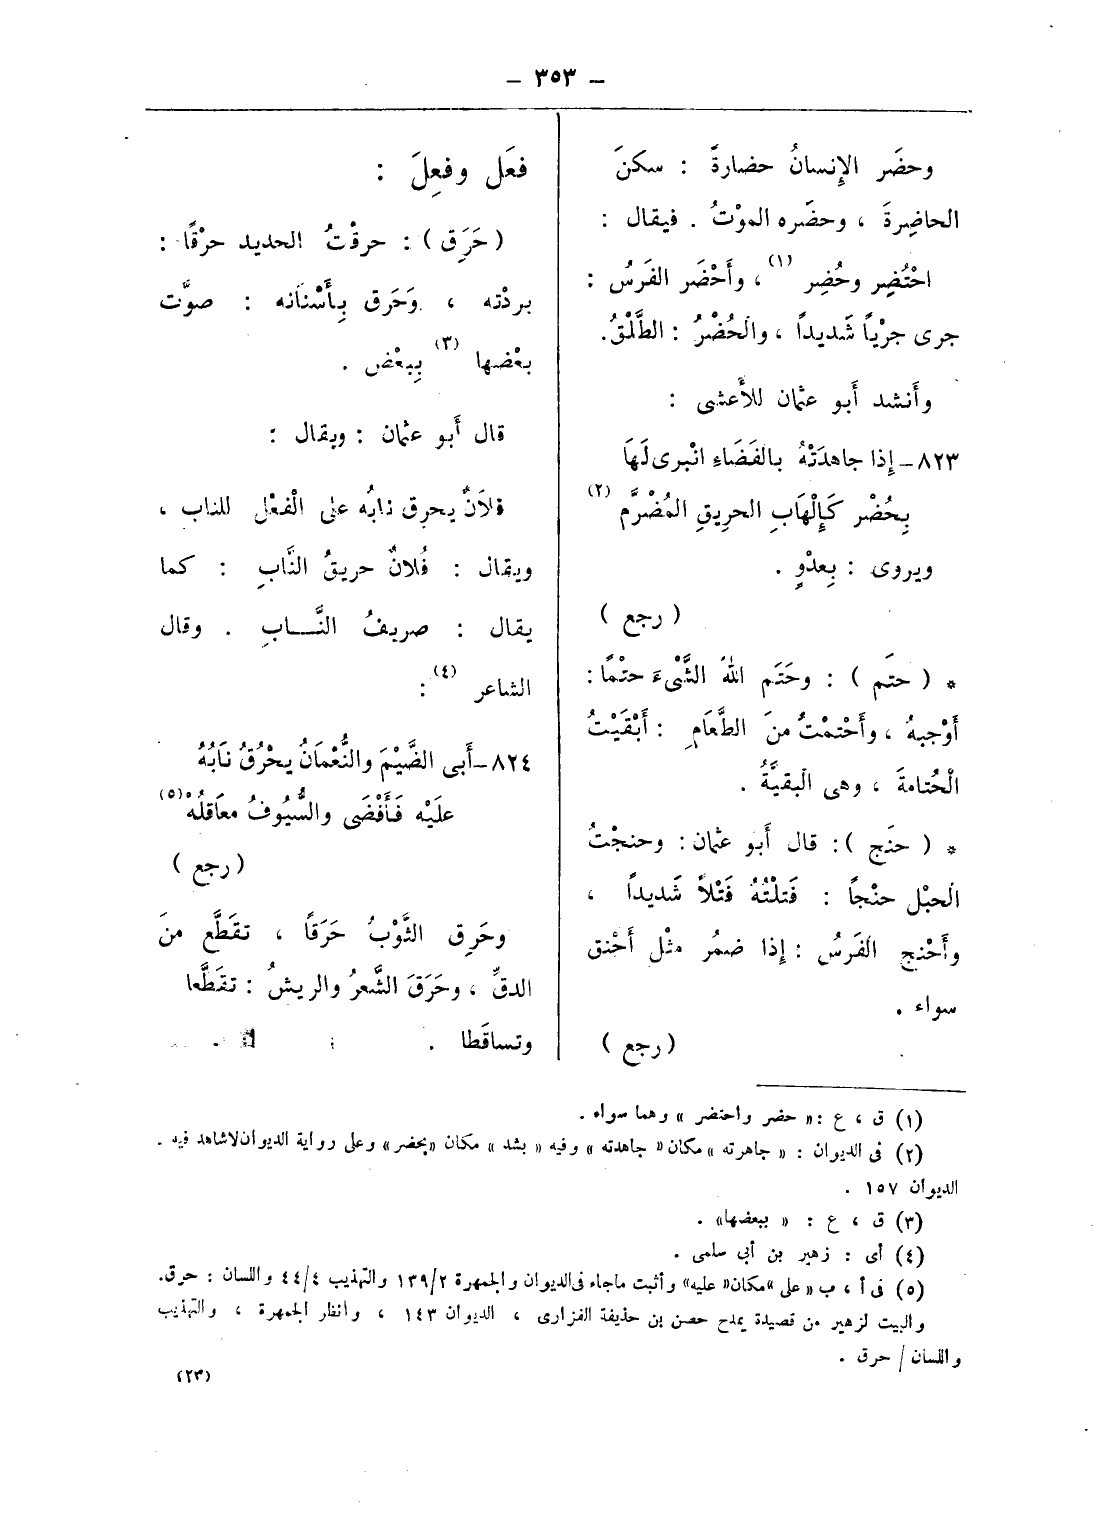 – ٣٥٣ –
وحضَر الإنسانُ حضارةً : سكنَ
الحاضِرةَ ، وحضَره الموْتُ . فيقال :
احْتُضِر وحُضِر (١) ، وأَحْضَر الفَرسُ :
جرى جرْياً شَديداً ، والحُضْرُ : الطَّلْقُ .
وأَنشد أَبو عثمان للأَعشى :
٨٢٣ – إِذا جاهدَتْهُ بالفَضَاءِ انْبرى لَهَا
بِحُضْر كَإِلْهَابِ الحرِيقِ المُضْرَّم (٢)
ويروى : بِعدْوٍ .
( رجع )
* ( حتَم ) : وحَتَم اللهُ الشَّىْءَ حتْمًا :
أَوْجبهُ ، وأَحْتمْتُ منَ الطَّعَامِ : أَبْقَيْتُ
الْحُتامةَ ، وهى الْبقيَّةُ .
* ( حنَج ) : قال أَبو عثمان : وحنجْتُ
الحبْل حنْجاً : فَتلْتُهُ فَتْلاً شَديداً ،
وأَحْنج الفَرسُ : إِذا ضمُر مثْل أَحْنق
سواء .
( رجع )
فعَل وفعِلَ :
( حَرَِق ) : حرقْتُ الحديد حرْقًا :
بردْته ، وَحَرق بِأَسْنَانه : صوَّت
بعْضها (٣) بِبعْض .
قال أَبو عثمان : ويقال :
فلاَنٌ يحرِق نابُه على الْفعْل للناب ،
ويقال : فُلانٌ حريقُ النَّابِ : كما
يقال : صريفُ النَّـابِ . وقال
الشاعر (٤) :
٨٢٤ – أَبى الضَّيْمَ والنُّعْمَانُ يحْرُقُ نَابُهُ
علَيْه فَأَفْضَى والسُّيُوفُ معَاقلُهْ (٥)
( رجع )
وحَرِق الثَّوْبُ حَرَقاً ، تقَطَّع منَ
الدقِّ ، وحَرَقَ الشَّعرُ والريشُ : تقَطَّعا
وتساقَطا .
(١) ق ، ع : « حضر واحتضر » وهما سواء .
(٢) فى الديوان : « جاهرته » مكان « جاهدته » وفيه « بشد » مكان « بحضر » وعلى رواية الديوان لاشاهد فيه .
الديوان ١٥٧ .
(٣) ق ، ع : « ببعضها » .
(٤) أى : زهير بن أبي سلمى .
(٥) فى أ ، ب « على » مكان « عليه » وأثبت ماجاء فى الديوان والجمهرة ١٣٩/٢ والتهذيب ٤٤/٤ واللسان : حرق .
والبيت لزهير من قصيدة يمدح حصن بن حذيفة الفزارى ، الديوان ١٤٣ ، وانظر الجمهرة ، والتهذيب
واللسان / حرق .
(٢٣)